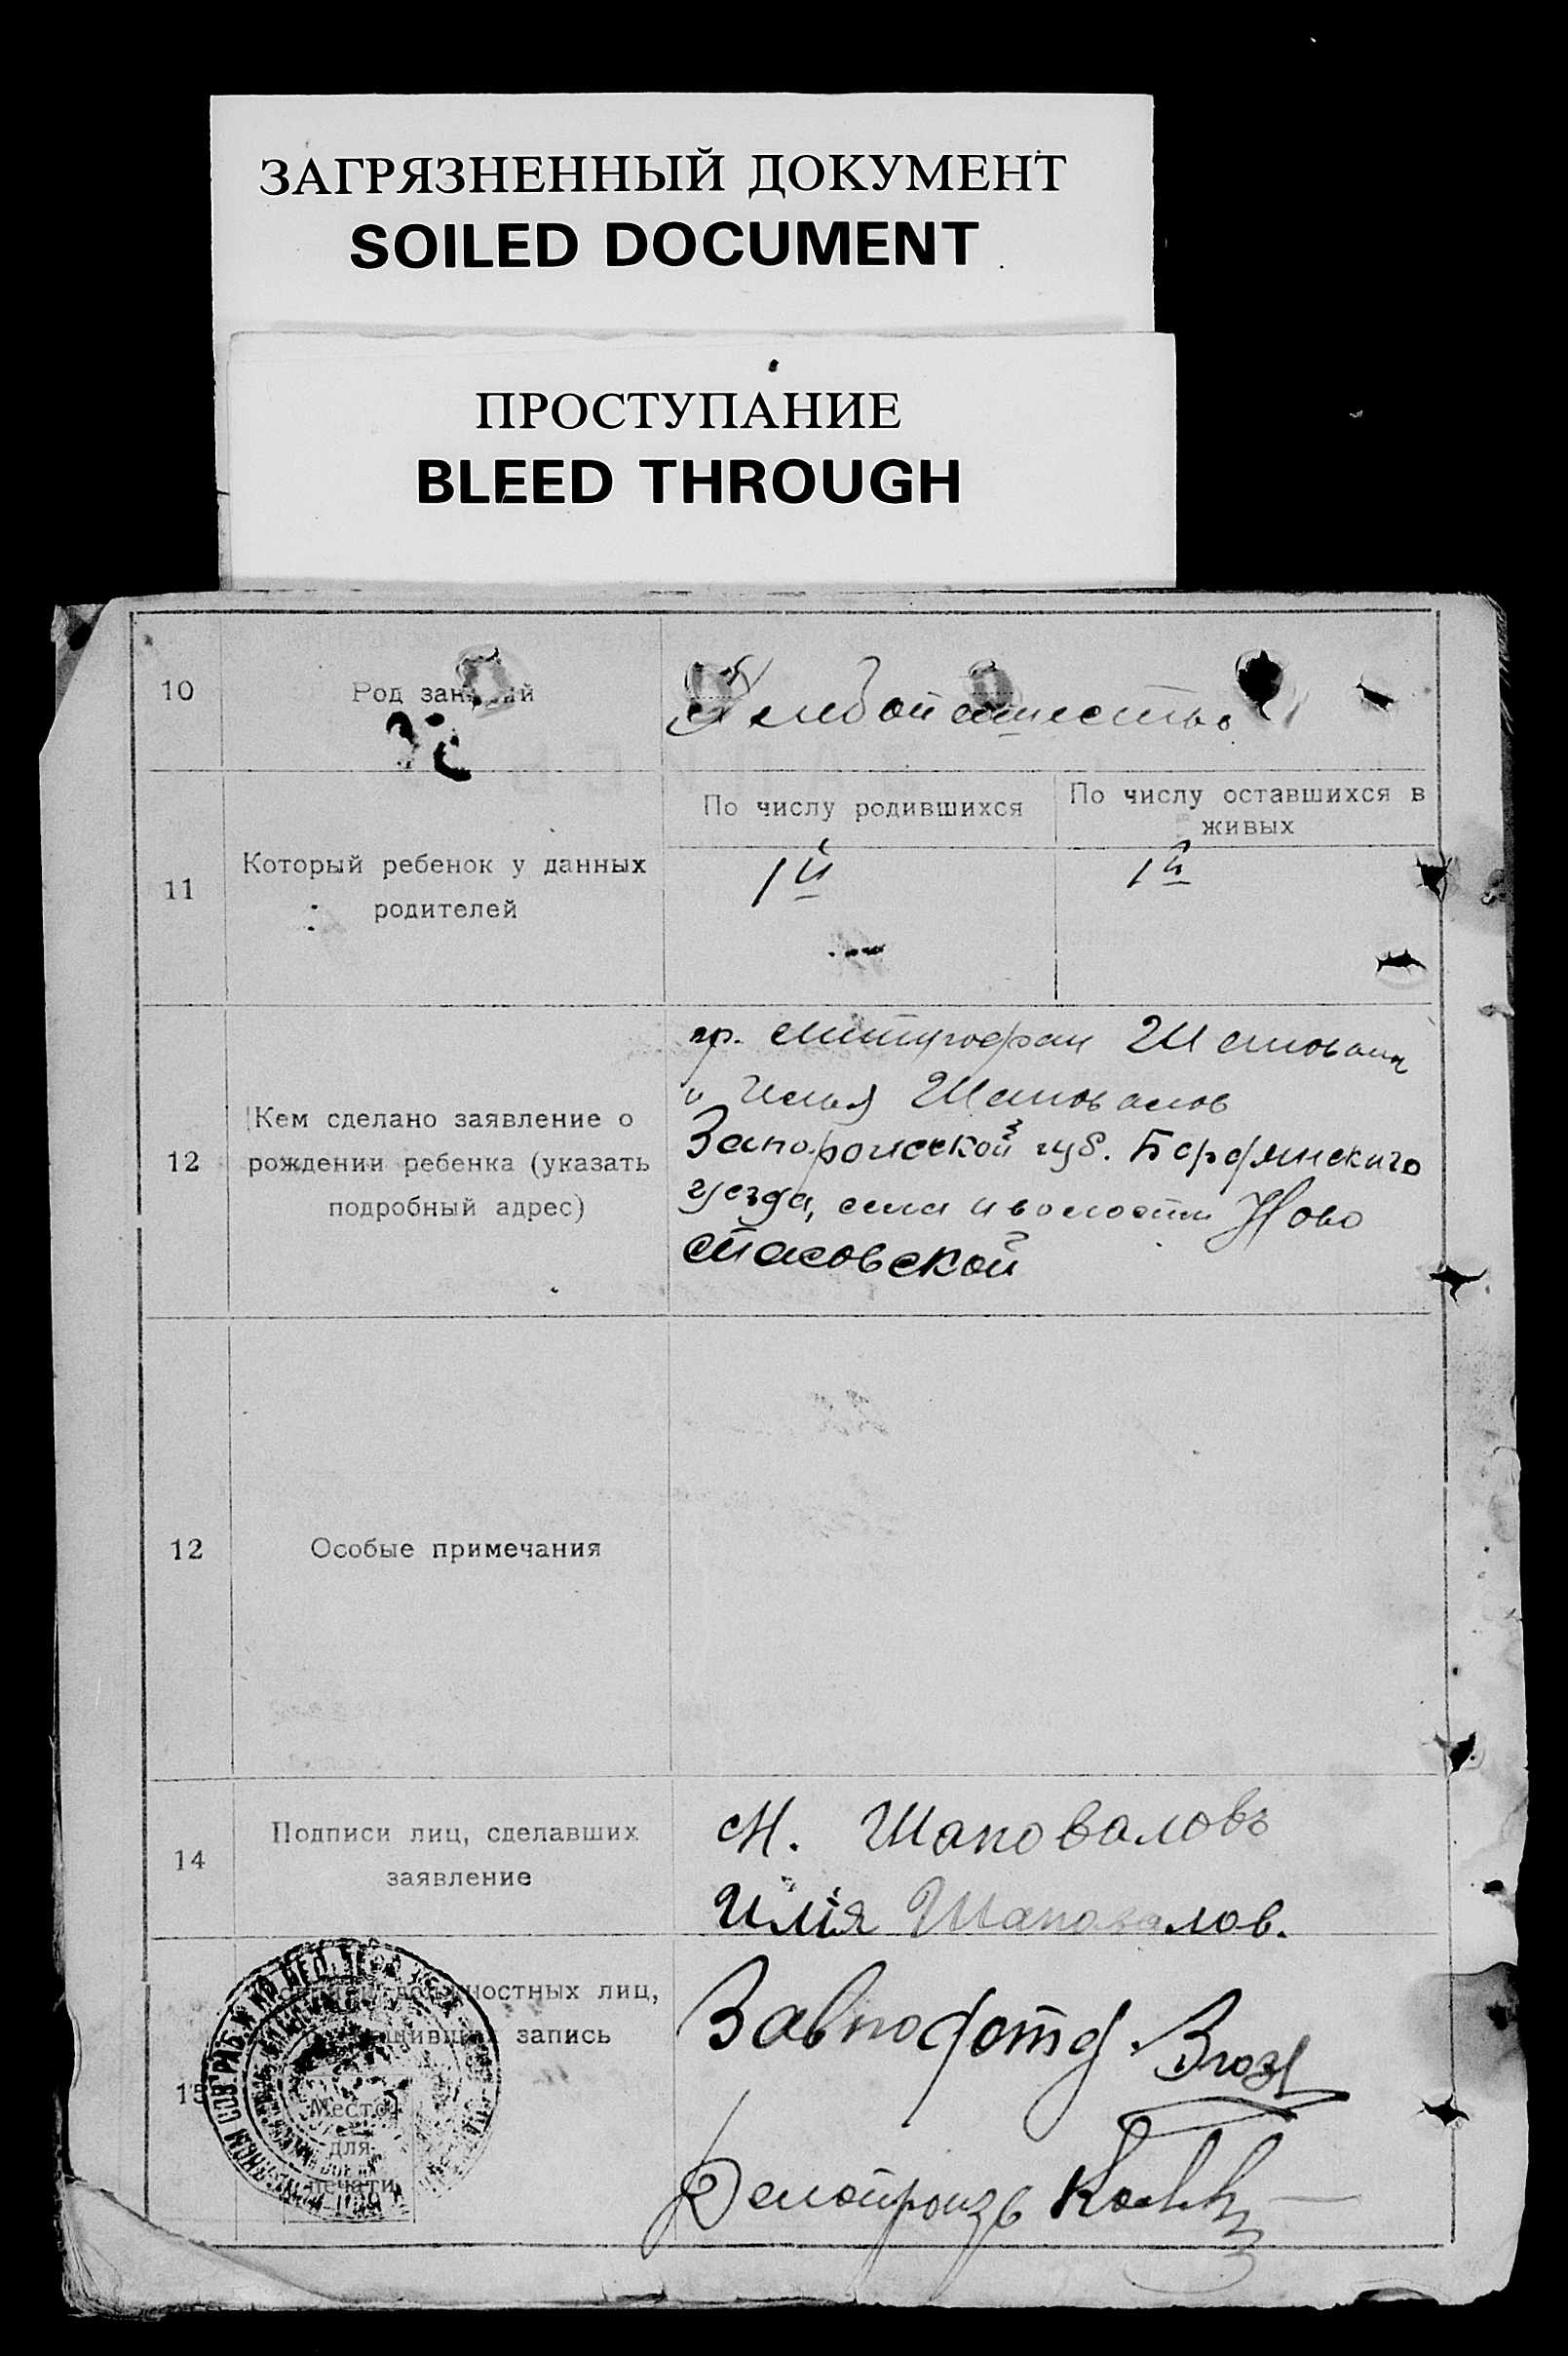 ЗАГРЯЗНЕННЫЙ ДОКУМЕНТ
SOILED DOCUMENT
ПРОСТУПАНИЕ
BLEED THROUGH
10
Род занятий
11
Который ребенок у данных
родителей
По числу родившихся
По числу оставшихся в
живых
1й
1й
12
Кем сделано заявление о
рождении ребенка (указать
подробный адрес)
гр. Митрофан
и Илья Шаповалов
Запорожской губ. Бердянского
уезда, села и волости Ново
спасовской
12
Особые примечания
14
Подписи лиц, сделавших
заявление
М. Шаповаловъ
Илія Шаповалов.
15
должностных лиц,
запись
Место
для
печати
Завподотд.
Делопроизв